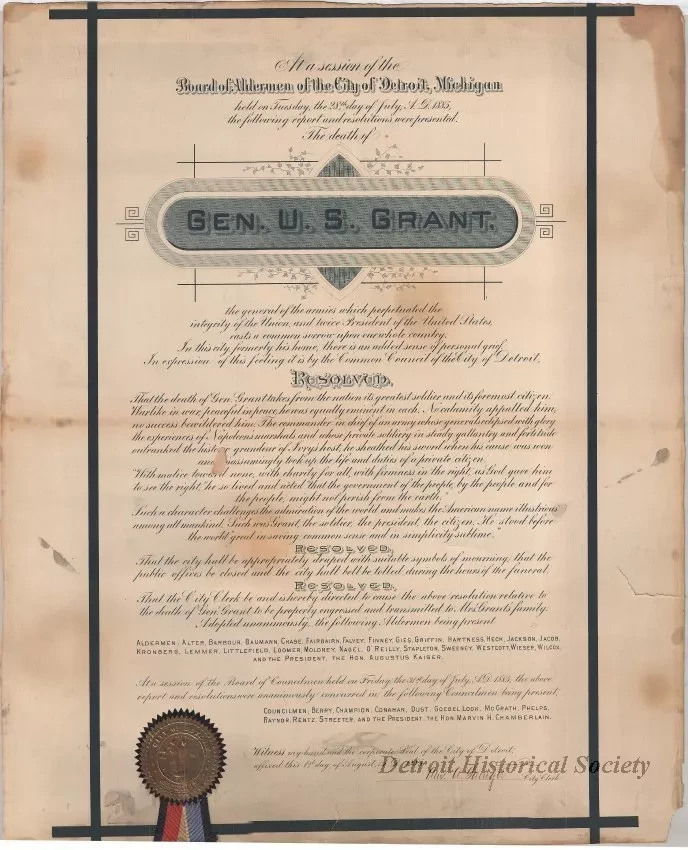 At a session of the
Board of Aldermen of the City of Detroit, Michigan
held on Tuesday, the 28th day of July, A.D. 1885,
the following report and resolutions were presented.
The death of
GEN. U. S. GRANT.
the general of the armies which perpetuated the
integrity of the Union, and twice President of the United States,
casts a common sorrow upon our whole country.
In this city, formerly his home, there is an added sense of personal grief.
In expression of this feeling it is by the Common Council of the City of Detroit,
RESOLVED,
That the death of Gen. Grant takes from the nation its greatest soldier and its foremost citizen.
Warlike in war, peaceful in peace, he was equally eminent in each. No calamity appalled him,
no success bewildered him. The commander in chief of an army whose generals eclipsed with glory
the experiences of Napoleon's marshals and whose private soldiery in steady gallantry and fortitude
outranked the historic grandeur of Ivry's host, he sheathed his sword when his cause was won
and unassumingly took up the life and duties of a private citizen.
"With malice toward none, with charity for all, with firmness in the right, as God gave him
to see the right," he so lived and acted "that the government of the people, by the people and for
the people, might not perish from the earth."
Such a character challenges the admiration of the world and makes the American name illustrious
among all mankind. Such was Grant, the soldier, the president, the citizen. He stood before
the world "great in saving common sense and in simplicity sublime."
RESOLVED,
That the city hall be appropriately draped with suitable symbols of mourning, that the
public offices be closed and the city hall bell be tolled during the hours of the funeral.
RESOLVED,
That the City Clerk be and is hereby directed to cause the above resolution relative to
the death of Gen. Grant to be properly engrossed and transmitted to Mrs. Grant's family.
Adopted unanimously, the following Aldermen being present
ALDERMEN, ALTER, BARBOUR, BAUMANN, CHASE, FAIRBAIRN, FALVEY, FINNEY, GIES, GRIFFIN, HARTNESS, HECK, JACKSON, JACOB,
KRONBERG, LEMMER, LITTLEFIELD, LOOMER, MOLONEY, NAGEL, O'REILLY, STAPLETON, SWEENEY, WESTCOTT, WIESER, WILCOX,
AND THE PRESIDENT, THE HON. AUGUSTUS KAISER.
At a session of the Board of Councilmen held on Friday, the 31st day of July, A.D. 1885, the above
report and resolutions were unanimously concurred in, the following Councilmen being present,
COUNCILMEN, BERRY, CHAMPION, CONAHAN, DUST, GOEBEL, LOOK, MCGRATH, PHELPS,
RAYNOR, RENTZ, STREETER, AND THE PRESIDENT, THE HON. MARVIN H. CHAMBERLAIN.
Witness my hand and the corporate Seal of the City of Detroit,
affixed this 1st day of August,
Detroit Historical Society
City Clerk